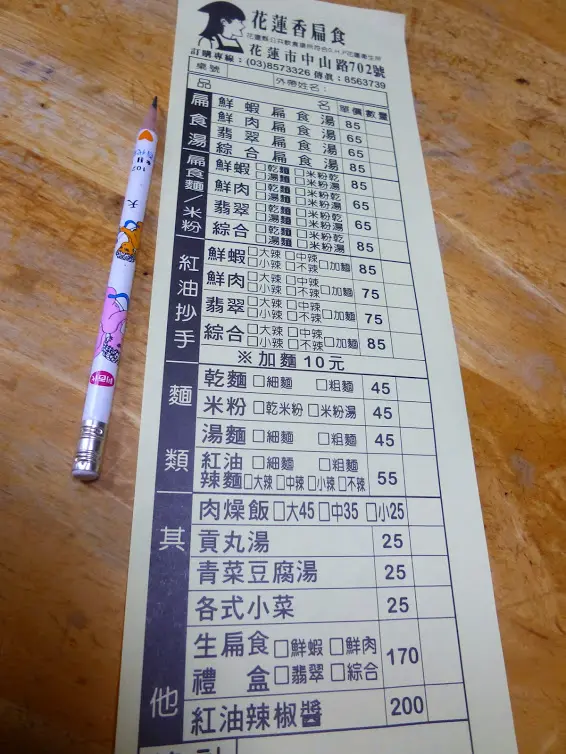 花蓮香扁食
花蓮市中山路702號
訂購專線:(03)8573326 傳真:8563739
桌號 外帶姓名:
品名 單價 數量
扁食湯
鮮蝦扁食湯 85
鮮肉扁食湯 65
翡翠扁食湯 65
綜合扁食湯 85
扁食麵/米粉
鮮蝦 □乾麵 □米粉乾 □湯麵 □米粉湯 85
鮮肉 □乾麵 □米粉乾 □湯麵 □米粉湯 65
翡翠 □乾麵 □米粉乾 □湯麵 □米粉湯 65
綜合 □乾麵 □米粉乾 □湯麵 □米粉湯 85
紅油抄手
鮮蝦 □大辣 □中辣 □小辣 □不辣 □加麵 85
鮮肉 □大辣 □中辣 □小辣 □不辣 □加麵 75
翡翠 □大辣 □中辣 □小辣 □不辣 □加麵 75
綜合 □大辣 □中辣 □小辣 □不辣 □加麵 85
※加麵10元
麵類
乾麵 □細麵 □粗麵 45
米粉 □乾米粉 □米粉湯 45
湯麵 □細麵 □粗麵 45
紅油 □細麵 □粗麵
辣麵 □大辣 □中辣 □小辣 □不辣 55
其他
肉燥飯 □大45 □中35 □小25
貢丸湯 25
青菜豆腐湯 25
各式小菜 25
生扁食 □鮮蝦 □鮮肉
禮盒 □翡翠 □綜合 170
紅油辣椒醬 200